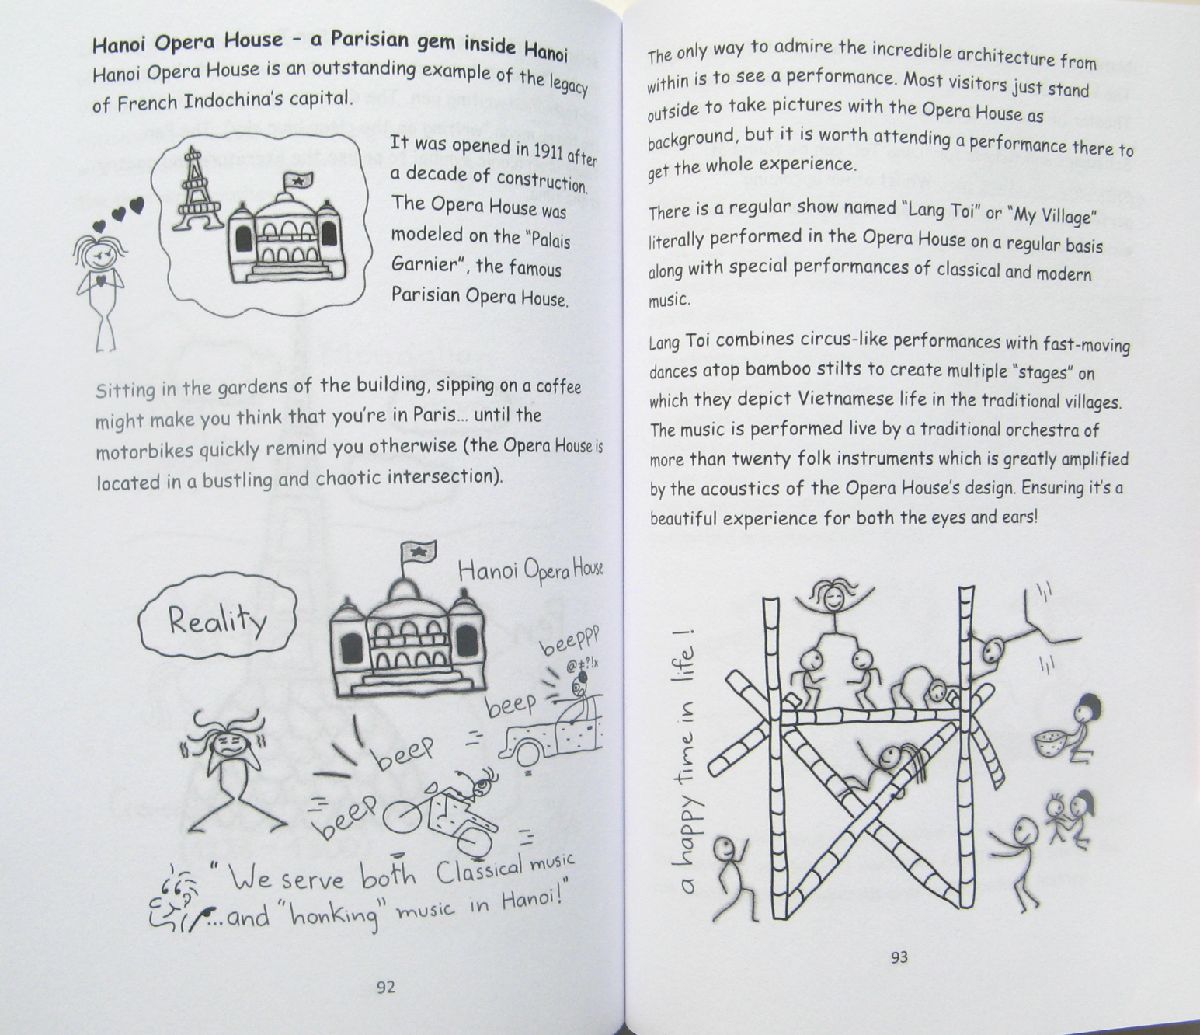 Hanoi Opera House - a Parisian gem inside Hanoi
Hanoi Opera House is an outstanding example of the legacy
of French Indochina's capital.
It was opened in 1911 after
a decade of construction.
The Opera House was
modeled on the "Palais
Garnier", the famous
Parisian Opera House.
Sitting in the gardens of the building, sipping on a coffee
might make you think that you're in Paris... until the
motorbikes quickly remind you otherwise (the Opera House is
located in a bustling and chaotic intersection).
Hanoi Opera House
Reality
beeppp
@#?!x
beep
beep
beep
"We serve both Classical music
...and "honking" music in Hanoi!"
92
The only way to admire the incredible architecture from
within is to see a performance. Most visitors just stand
outside to take pictures with the Opera House as
background, but it is worth attending a performance there to
get the whole experience.
There is a regular show named "Lang Toi" or "My Village"
literally performed in the Opera House on a regular basis
along with special performances of classical and modern
music.
Lang Toi combines circus-like performances with fast-moving
dances atop bamboo stilts to create multiple "stages" on
which they depict Vietnamese life in the traditional villages.
The music is performed live by a traditional orchestra of
more than twenty folk instruments which is greatly amplified
by the acoustics of the Opera House's design. Ensuring it's a
beautiful experience for both the eyes and ears!
a happy time in life!
93